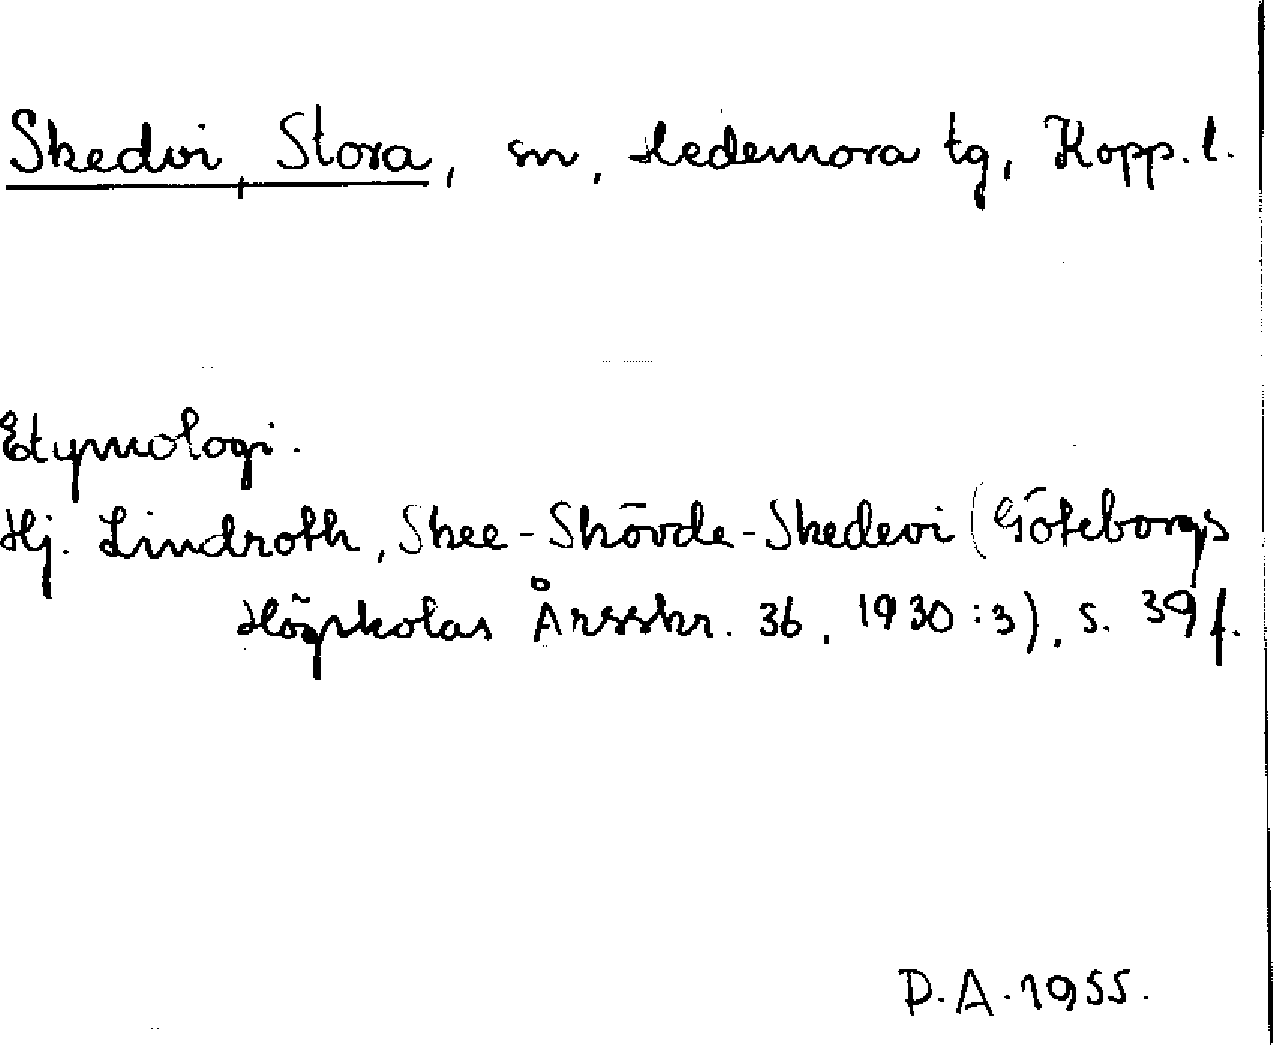 Skedvi, Stora, sn, Hedemora tg, Kopp. l.
Etymologi.
Hj. Lindroth, Skee-Skövde-Skedevi (Göteborgs
Högskolas Årsskr. 36, 1930:3), s. 39 f.
D.A. 1955.